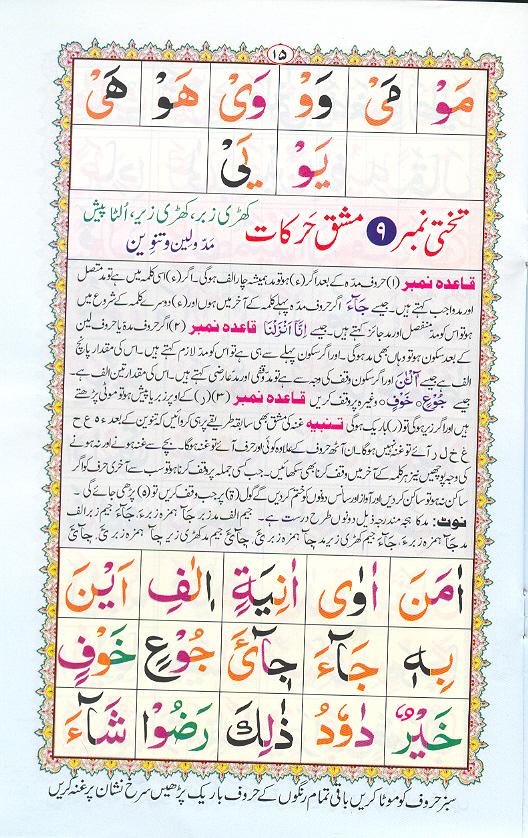 ۱۵
مَوْ مَیْ وَوْ وَیْ هَوْ هَیْ
یَوْ یَیْ
تختی نمبر ۹ مشق حَرکات کھڑی زبر، کھڑی زیر، اُلٹا پیش
مدّ ولین وتنوین
قاعدہ نمبر (۱) حروف مدّہ کے بعد اگر (ء) ہو تو مد ہمیشہ چار الف ہوگی۔ اگر (ء) اسی کلمہ میں ہے تو مد متصل
اور مد واجب کہتے ہیں۔ جیسے جَآءَ اگر حروف مدّہ پہلے کلمہ کے آخر میں ہوں اور (ء) دوسرے کلمہ کے شروع میں
ہو تو اس کو مدّ منفصل اور مدّ جائز کہتے ہیں۔ جیسے اِنَّآ اَنْزَلْنَا قاعدہ نمبر (۲) اگر حروف مدّہ یا حروف لین
کے بعد سکون ہو تو وہاں بھی مد ہوگی۔ اور اگر سکون پہلے سے ہی ہے تو اس کو مدّ لازم کہتے ہیں۔ اس کی مقدار پانچ
الف ہے جیسے آٰلْـٰٔنَ اور اگر سکون وقف کی وجہ سے ہے تو مدّ وقفی اور مدّ عارضی کہتے ہیں۔ اس کی مقدار تین الف ہے۔
جیسے جُوْعٍ خَوْفٍ وغیرہ پر وقف کریں قاعدہ نمبر (۳) (ر) کے اوپر زبر یا پیش ہو تو موٹی پڑھتے
ہیں اور اگر زیر ہوگی تو (ر) باریک ہوگی تنبیہ غنہ کی مشق بھی سابقہ طریقے پر ہی کروائیں کہ تنوین کے بعد ء ہ ع ح
غ خ ل ر آئے تو غنہ نہیں ہوگا۔ ان آٹھ حروف کے علاوہ کوئی اور حرف آئے تو غنہ ہوگا۔ بچے سے غنہ ہونے اور نہ ہونے
کی وجہ پوچھیں نیز ہر کلمہ کے آخر میں وقف کرنا بھی سکھائیں۔ جب کسی جملہ پر وقف کرنا ہو تو سب سے آخری حرف کو اگر
ساکن نہ ہو تو ساکن کر دیں اور آواز اور سانس دونوں کو ختم کر دیں گے گول (ۃ) پر جب وقف کریں تو (ہ) پڑھی جائے گی۔
نوٹ: مد کا ہجہ مندرجہ ذیل دونوں طرح درست ہے۔ جیم الف مد زبر جَآ ہمزہ زبر ءَ، جَآءَ جیم زبر الف
مد جَآ ہمزہ زبر ءَ، جَآءَ جیم کھڑی زیر مد
اٰمَنَ اٰوٰی اٰنِیَةٍ اٖلٰفِ اَیْنَ
بِهٖ جَآءَ جِآیْٔ جُوْعٍ خَوْفٍ
خَیْرٌ دَاوٗدُ ذٰلِکَ رَضُوْا شَآءَ
سبز حروف کو موٹا کریں باقی تمام رنگوں کے حروف باریک پڑھیں سرخ نشان پر غنہ کریں